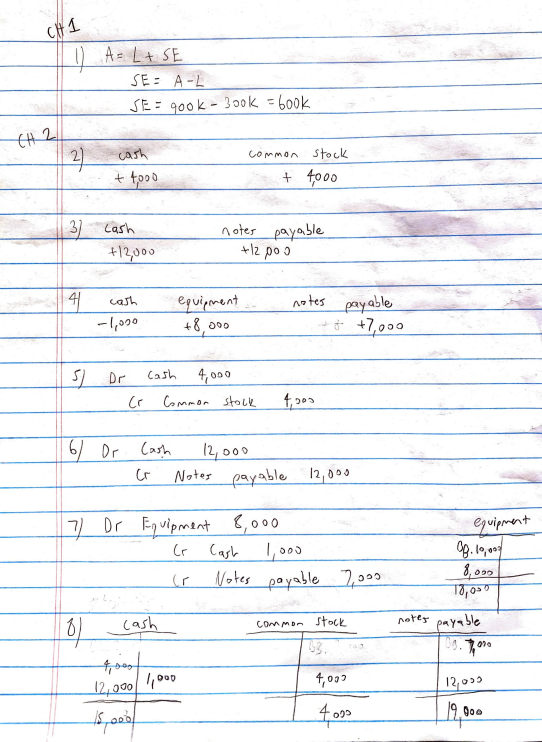 CH 1
1) A = L + SE
SE = A - L
SE = 900K - 300K = 600K
CH 2
2) cash common stock
+ 4,000 + 4,000
3) cash notes payable
+12,000 +12,000
4) cash equipment notes payable
-1,000 +8,000 +7,000
5) Dr Cash 4,000
Cr Common stock 4,000
6) Dr Cash 12,000
Cr Notes payable 12,000
7) Dr Equipment 8,000
Cr Cash 1,000
Cr Notes payable 7,000
equipment
BB. 10,000
8,000
18,000
8) cash common stock notes payable
BB. BB. 7,000
4,000
12,000 1,000 4,000 12,000
15,000 4,000 19,000